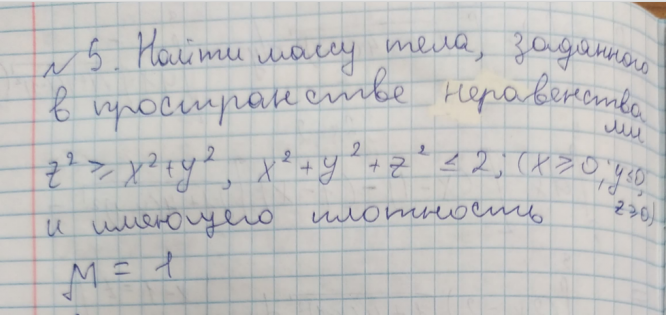 №5. Найти массу тела, заданного
в пространстве неравенства
ми
z² ≥ x²+y², x²+y²+z² ≤ 2; (x≥0; y≤0;
z≥0)
и имеющего плотность
M = 1